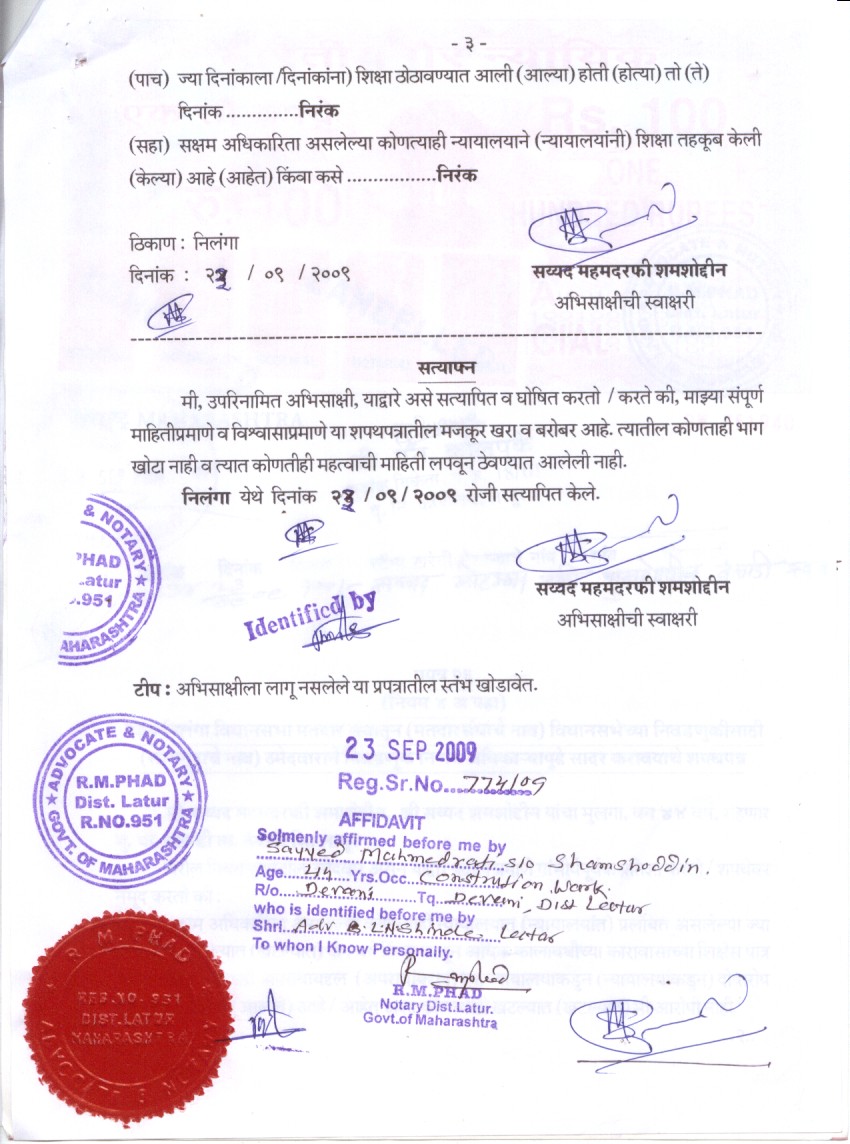 - ३ -
(पाच) ज्या दिनांकाला /दिनांकांना) शिक्षा ठोठावण्यात आली (आल्या) होती (होत्या) तो (ते)
दिनांक .............निरंक
(सहा) सक्षम अधिकारिता असलेल्या कोणत्याही न्यायालयाने (न्यायालयांनी) शिक्षा तहकूब केली
(केल्या) आहे (आहेत) किंवा कसे .................निरंक
ठिकाण : निलंगा
दिनांक : २३ / ०९ / २००९
सय्यद महमदरफी शमशोद्दीन
अभिसाक्षीची स्वाक्षरी
सत्यापन
मी, उपरिनामित अभिसाक्षी, याद्वारे असे सत्यापित व घोषित करतो / करते की, माझ्या संपूर्ण
माहितीप्रमाणे व विश्वासाप्रमाणे या शपथपत्रातील मजकूर खरा व बरोबर आहे. त्यातील कोणताही भाग
खोटा नाही व त्यात कोणतीही महत्वाची माहिती लपवून ठेवण्यात आलेली नाही.
निलंगा येथे दिनांक २३ / ०९ / २००९ रोजी सत्यापित केले.
& NOTARY
PHAD
Latur
.951
AHARASHTRA
सय्यद महमदरफी शमशोद्दीन
अभिसाक्षीची स्वाक्षरी
Identified by
टीप : अभिसाक्षीला लागू नसलेले या प्रपत्रातील स्तंभ खोडावेत.
ADVOCATE & NOTARY
R.M.PHAD
Dist. Latur
R.NO.951
GOVT. OF MAHARASHTRA
23 SEP 2009
Reg.Sr.No. 774/09
AFFIDAVIT
Solmenly affirmed before me by
Sayyed Mahmedrafi s/o Shamshoddin.
Age....44...Yrs.Occ...Constrution Work.
R/o....Devani......Tq...Devani, Dist Lactur
who is identified before me by
Shri. Adv. Shinde, Lactur
To whon I Know Personally.
R.M.PHAD
Notary Dist.Latur.
Govt.of Maharashtra
R. M. PHAD
REG.NO. 951
DIST.LATUR
MAHARASHTRA